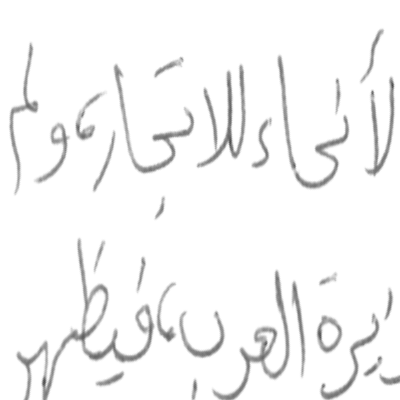 لأنحاء للاتجار، ولم
يرة العرب، فيظهر